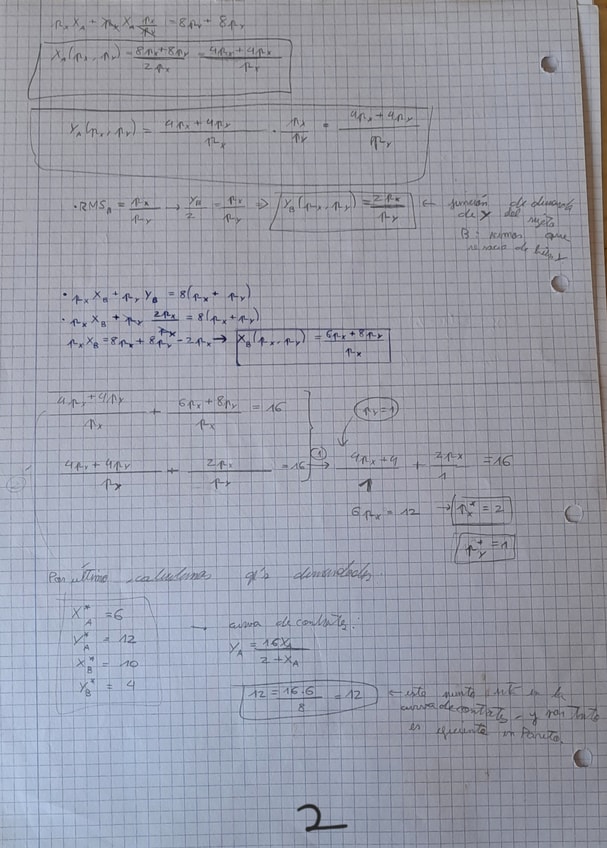 p_x X_A + p_x X_A p_x/p_x = 8p_x + 8p_y
X_A(p_x, p_y) = (8p_x+8p_y)/(2p_x) = (4p_x+4p_x)/p_x
Y_A(p_x, p_y) = (4p_x+4p_y)/p_x · p_x/p_y = (4p_x+4p_y)/p_y
· RMS_B = p_x/p_y → Y_B/2 = p_x/p_y => Y_B(p_x, p_y) = 2p_x/p_y ← función de demanda
de Y del sujeto
B:
· p_x X_B + p_y Y_B = 8(p_x + p_y)
· p_x X_B + p_y 2p_x/p_x = 8(p_x + p_y)
p_x X_B = 8p_x + 8p_y - 2p_x → X_B(p_x, p_y) = (6p_x+8p_y)/p_x
(4p_y+4p_x)/p_x + (6p_x+8p_y)/p_x = 16
p_y=1
(4p_x+4p_y)/p_y + 2p_x/p_y = 16 ① → (4p_x+4)/1 + 2p_x/1 = 16
6p_x = 12 → p_x* = 2
p_y* = 1
Por último calculamos q's demandadas
X_A* = 6
Y_A* = 12
X_B* = 10
Y_B* = 4
→ curva de contratos:
Y_A = 16X_A/(2+X_A)
12 = 16·6/8 = 12 ← este punto está en la
curva de contratos y por tanto
es eficiente en Pareto.
2